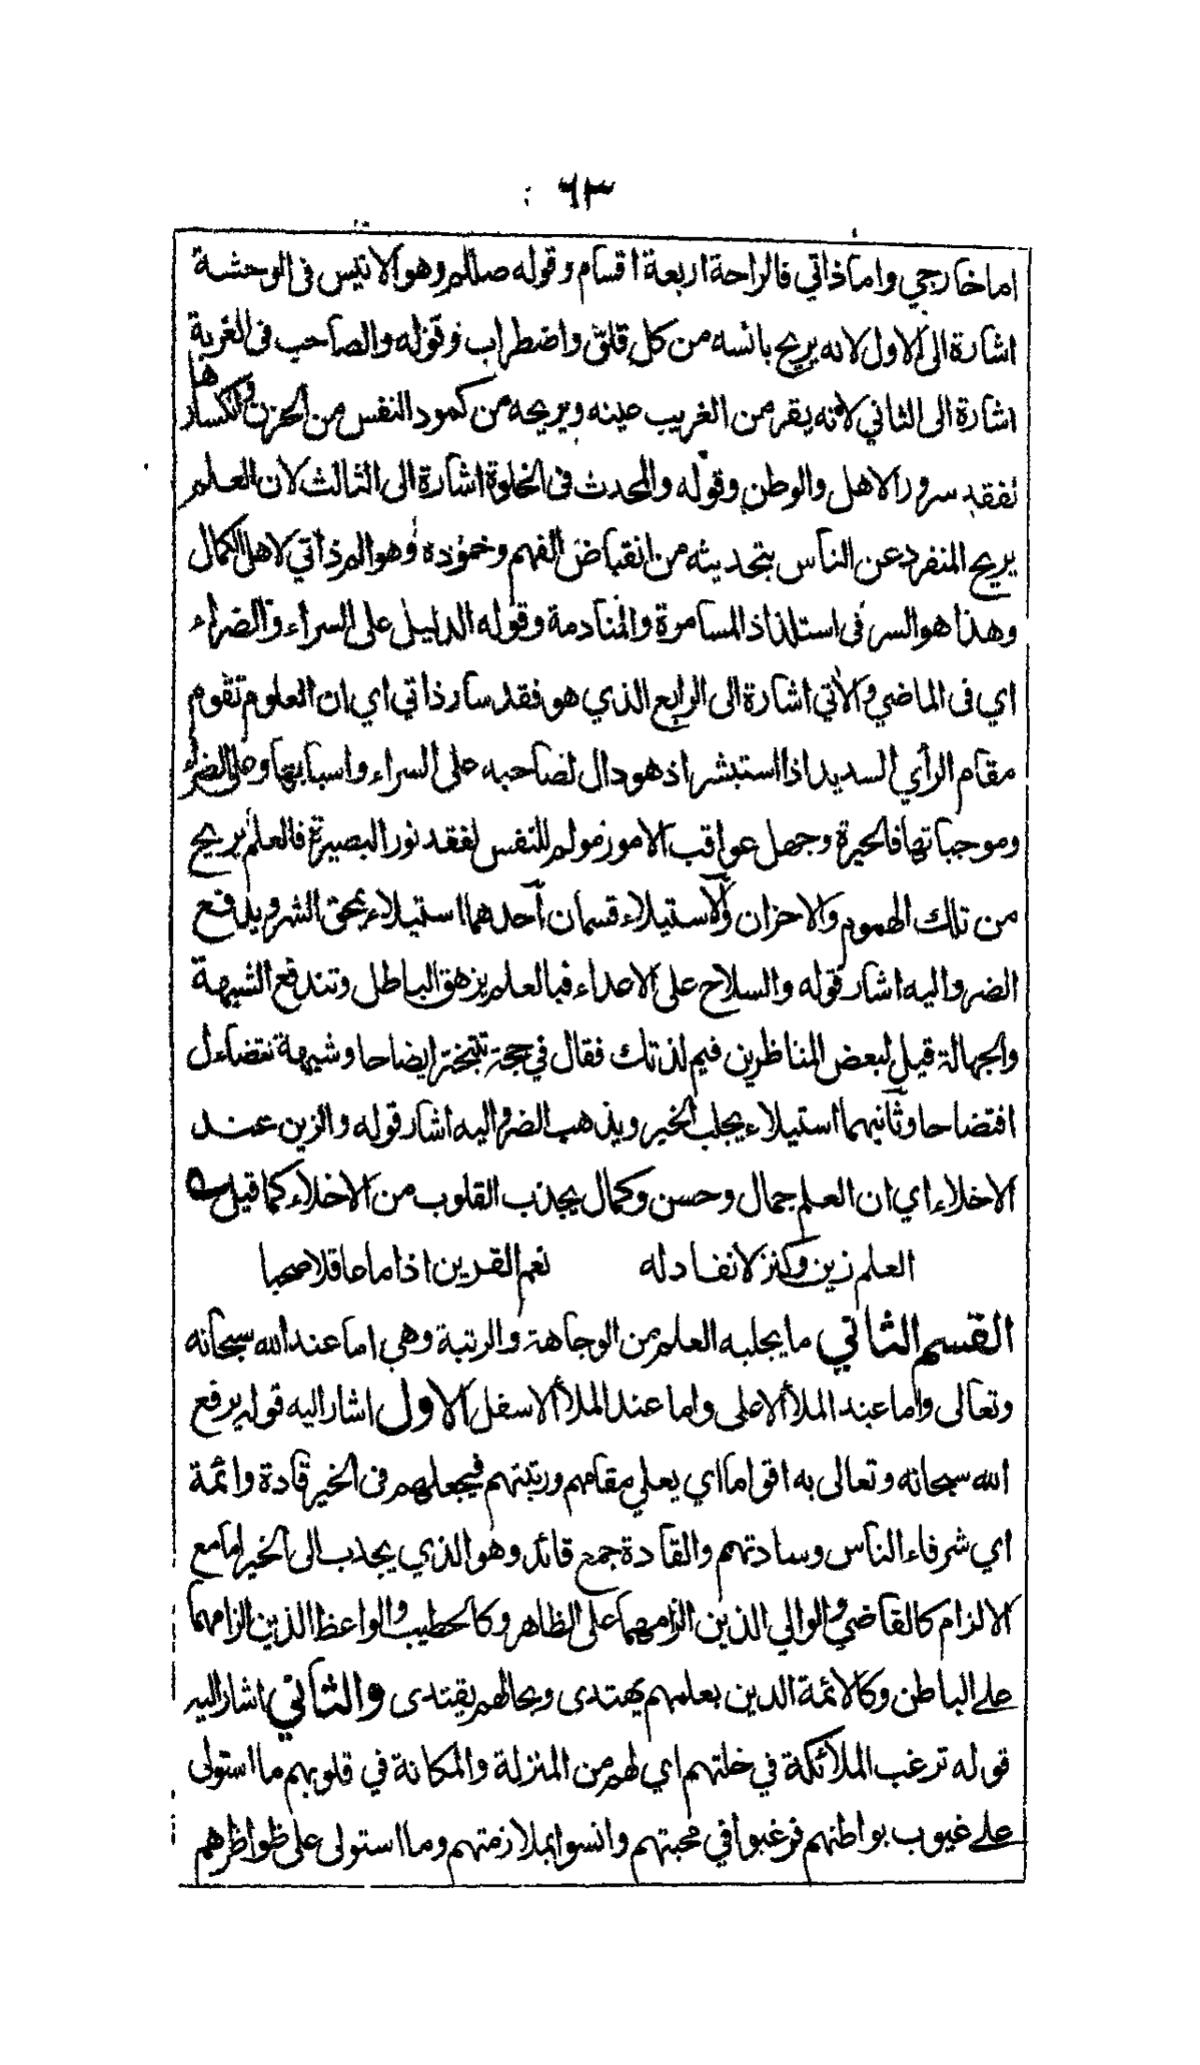 ٦٣
اما خارجي واما ذاتي فالراحة اربعة اقسام وقوله صللم وهو الانيس فى الوحشة
اشارة الى الاول لانه يريح بانسه من كل قلق واضطراب وقوله والصاحب فى الغربة
اشارة الى الثاني لانه يقر من الغريب عينه ويريحه من كمود النفس من الحزن وانكسارها
بفقد سرور الاهل والوطن وقوله والمحدث فى الخلوة اشارة الى الثالث لان العلم
يريح المنفرد عن الناس بتحديثه من انقباض الفهم وخموده وهو الم ذاتي لاهل الكمال
وهذا هو السر فى استلذاذ المسامرة والمنادمة وقوله الدليل على السراء والضراء
اي فى الماضي والاتي اشارة الى الرابع الذي هو فقد سار ذاتي اي ان العلوم تقوم
مقام الرأي السديد اذا استبشر اذ هو دال لصاحبه على السراء واسبابها وعلى الضراء
وموجباتها فالحيرة وجهل عواقب الامور مولم للنفس لفقد نور البصيرة فالعلم يريح
من تلك الهموم والاحزان والاستيلاء قسمان احدهما استيلاء يمحق الشر ويدفع
الضر واليه اشار قوله والسلاح على الاعداء فبالعلم يزهق الباطل وتندفع الشبهة
والجهالة قيل لبعض المناظرين فيم لذتك فقال في حجة تتبختر ايضاحا وشبهة تتضاءل
افتضاحا وثانيهما استيلاء يجلب الخير ويذهب الضر واليه اشار قوله والزين عند
الاخلاء اي ان العلم جمال وحسن وكمال يجذب القلوب من الاخلاء كما قيل
العلم زين وكنز لا نفاد له نعم القرين اذا ما عاقلا صحبا
القسم الثاني ما يجلبه العلم من الوجاهة والرتبة وهي اما عند الله سبحانه
وتعالى واما عند الملأ الاعلى واما عند الملأ الاسفل الاول اشار اليه قوله يرفع
الله سبحانه وتعالى به اقواما اي يعلي مقامهم ورتبتهم فيجعلهم فى الخير قادة وائمة
اي شرفاء الناس وسادتهم والقادة جمع قائد وهو الذي يجذب الى الخير اما مع
الالزام كالقاضي والوالي الذين الزامهما على الظاهر وكالخطيب والواعظ الذين الزامهما
على الباطن وكالائمة الذين بعلمهم يهتدى وبحالهم يقتدى والثاني اشار اليه
قوله ترغب الملائكة في خلتهم اي لهم من المنزلة والمكانة في قلوبهم ما استولى
على غيوب بواطنهم فرغبوا في محبتهم وانسوا بملازمتهم وما استولى على ظواهرهم